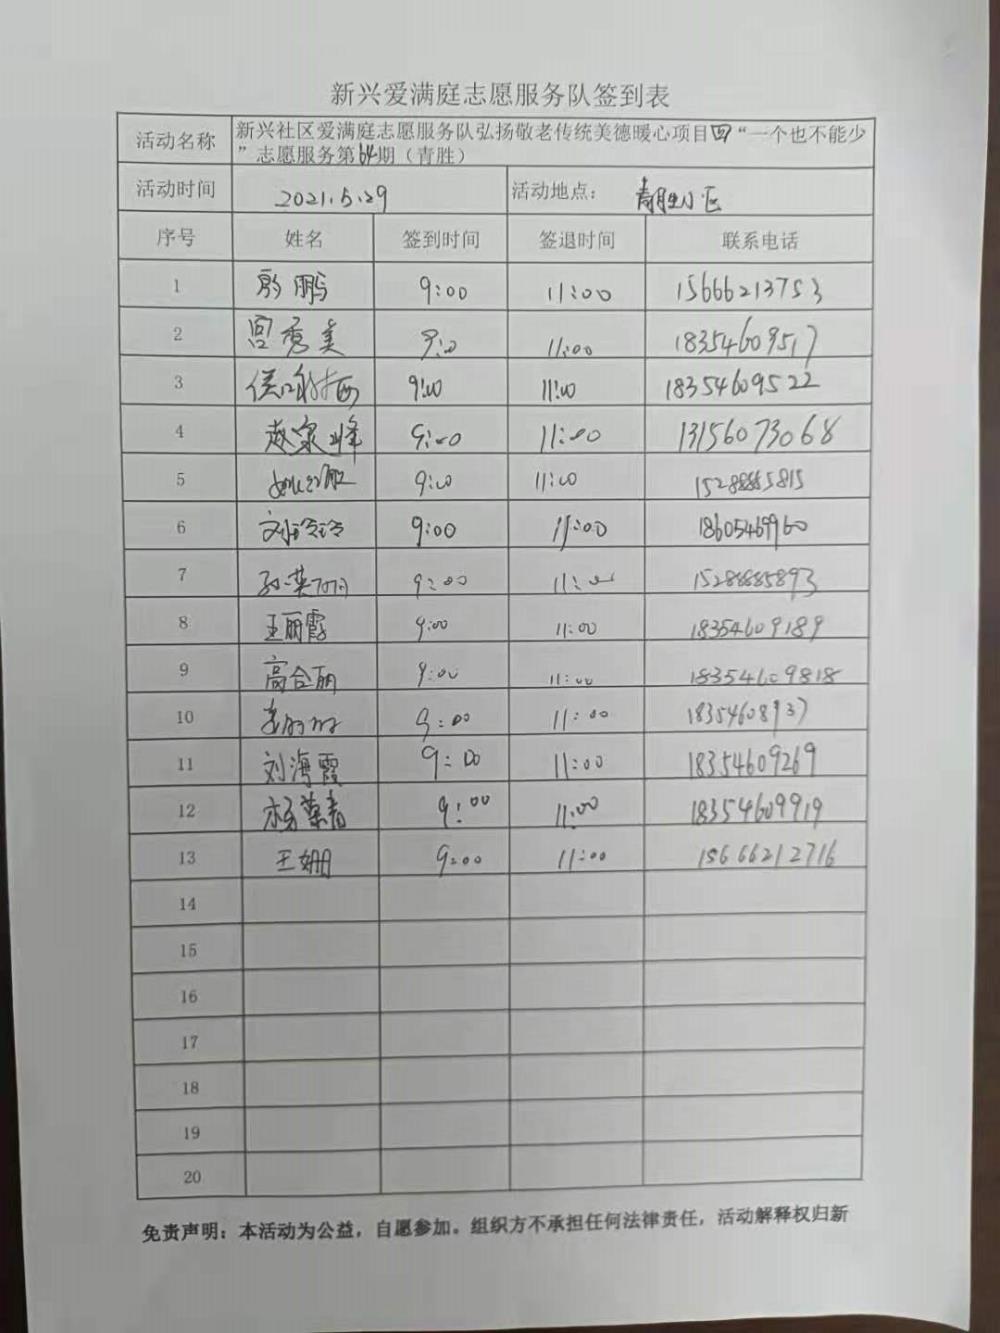 新兴爱满庭志愿服务队签到表
活动名称 新兴社区爱满庭志愿服务队弘扬敬老传统美德暖心项目四“一个也不能少
”志愿服务第64期（青胜）
活动时间 2021.5.29 活动地点： 青胜小区
序号 姓名 签到时间 签退时间 联系电话
1 鹏 9:00 11:00 15666213753
2 宫秀美 9:00 11:00 18354609517
3 9:00 11:00 18354609522
4 赵家峰 9:00 11:00 13156073068
5 9:00 11:00 15288885815
6 刘玲玲 9:00 11:00 18605469960
7 孙英 9:00 11:00 15288885893
8 王丽霞 9:00 11:00 18354609189
9 高合丽 9:00 11:00 18354609818
10 9:00 11:00 18354608937
11 刘海霞 9:00 11:00 18354609269
12 杨荣青 9:00 11:00 18354609919
13 王姗 9:00 11:00 15666212716
14
15
16
17
18
19
20
免责声明：本活动为公益，自愿参加。组织方不承担任何法律责任，活动解释权归新